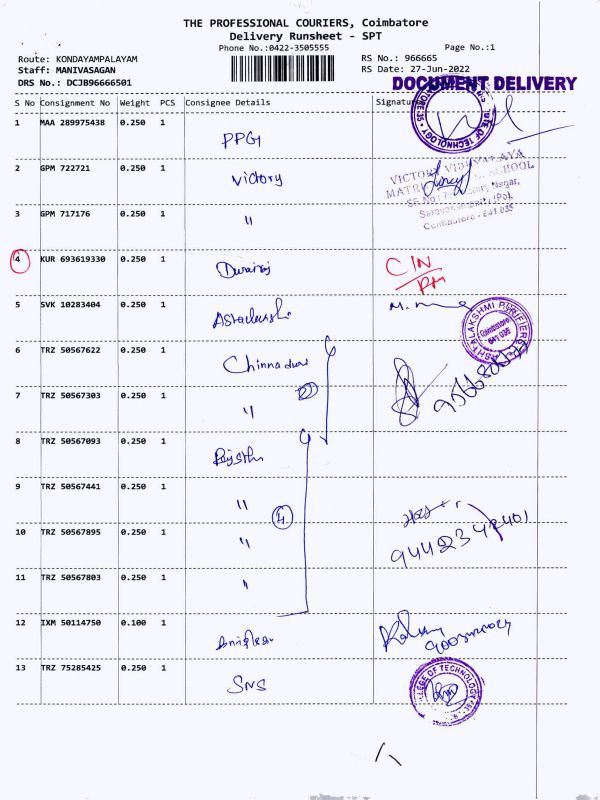 THE PROFESSIONAL COURIERS, Coimbatore
Delivery Runsheet - SPT
Phone No.:0422-3505555
Page No.:1
Route: KONDAYAMPALAYAM
RS No.: 966665
Staff: MANIVASAGAN
RS Date: 27-Jun-2022
DRS No.: DCJB96666501
DOCUMENT DELIVERY
S No Consignment No Weight PCS Consignee Details Signature
1 MAA 289975438 0.250 1
PPG
2 GPM 722721 0.250 1 Victory
3 GPM 717176 0.250 1 "
4 KUR 693619330 0.250 1 Durairaj
C/N
PM
5 SVK 10283404 0.250 1
6 TRZ 50567622 0.250 1 Chinnadurai
7 TRZ 50567303 0.250 1 " 2
8 TRZ 50567093 0.250 1
9 TRZ 50567441 0.250 1 "
4
10 TRZ 50567895 0.250 1 "
9442342401
11 TRZ 50567803 0.250 1 "
12 IXM 50114750 0.100 1
13 TRZ 75285425 0.250 1 SNS